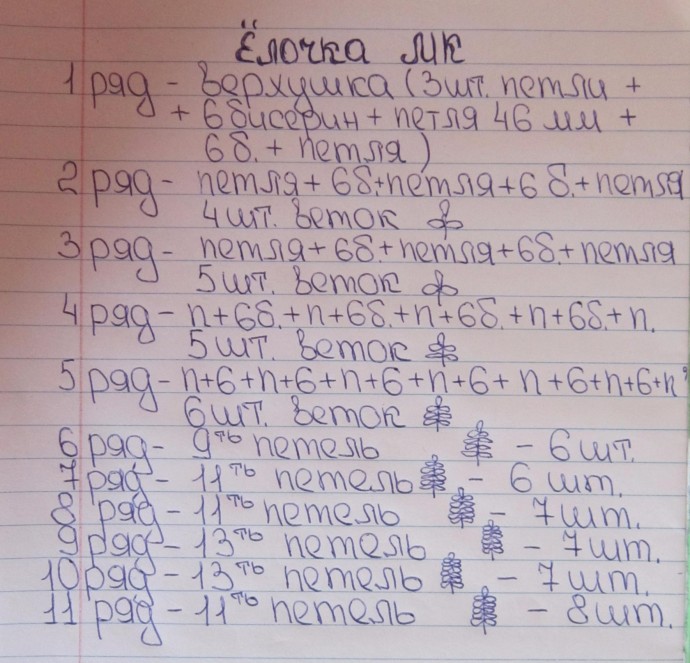 Ёлочка МК
1 ряд - верхушка (3 шт. петли +
+ 6 бисерин + петля 46 мм +
6б. + петля)
2 ряд - петля + 6б + петля + 6б. + петля
4 шт. веток
3 ряд - петля + 6б. + петля + 6б. + петля
5 шт. веток
4 ряд - п + 6б. + п + 6б. + п + 6б. + п + 6б. + п.
5 шт. веток
5 ряд - п + 6 + п + 6 + п + 6 + п + 6 + п + 6 + п + 6 + п
6 шт. веток
6 ряд - 9ть петель - 6 шт.
7 ряд - 11ть петель - 6 шт.
8 ряд - 11ть петель - 7 шт.
9 ряд - 13ть петель - 7 шт.
10 ряд - 13ть петель - 7 шт.
11 ряд - 11ть петель - 8 шт.